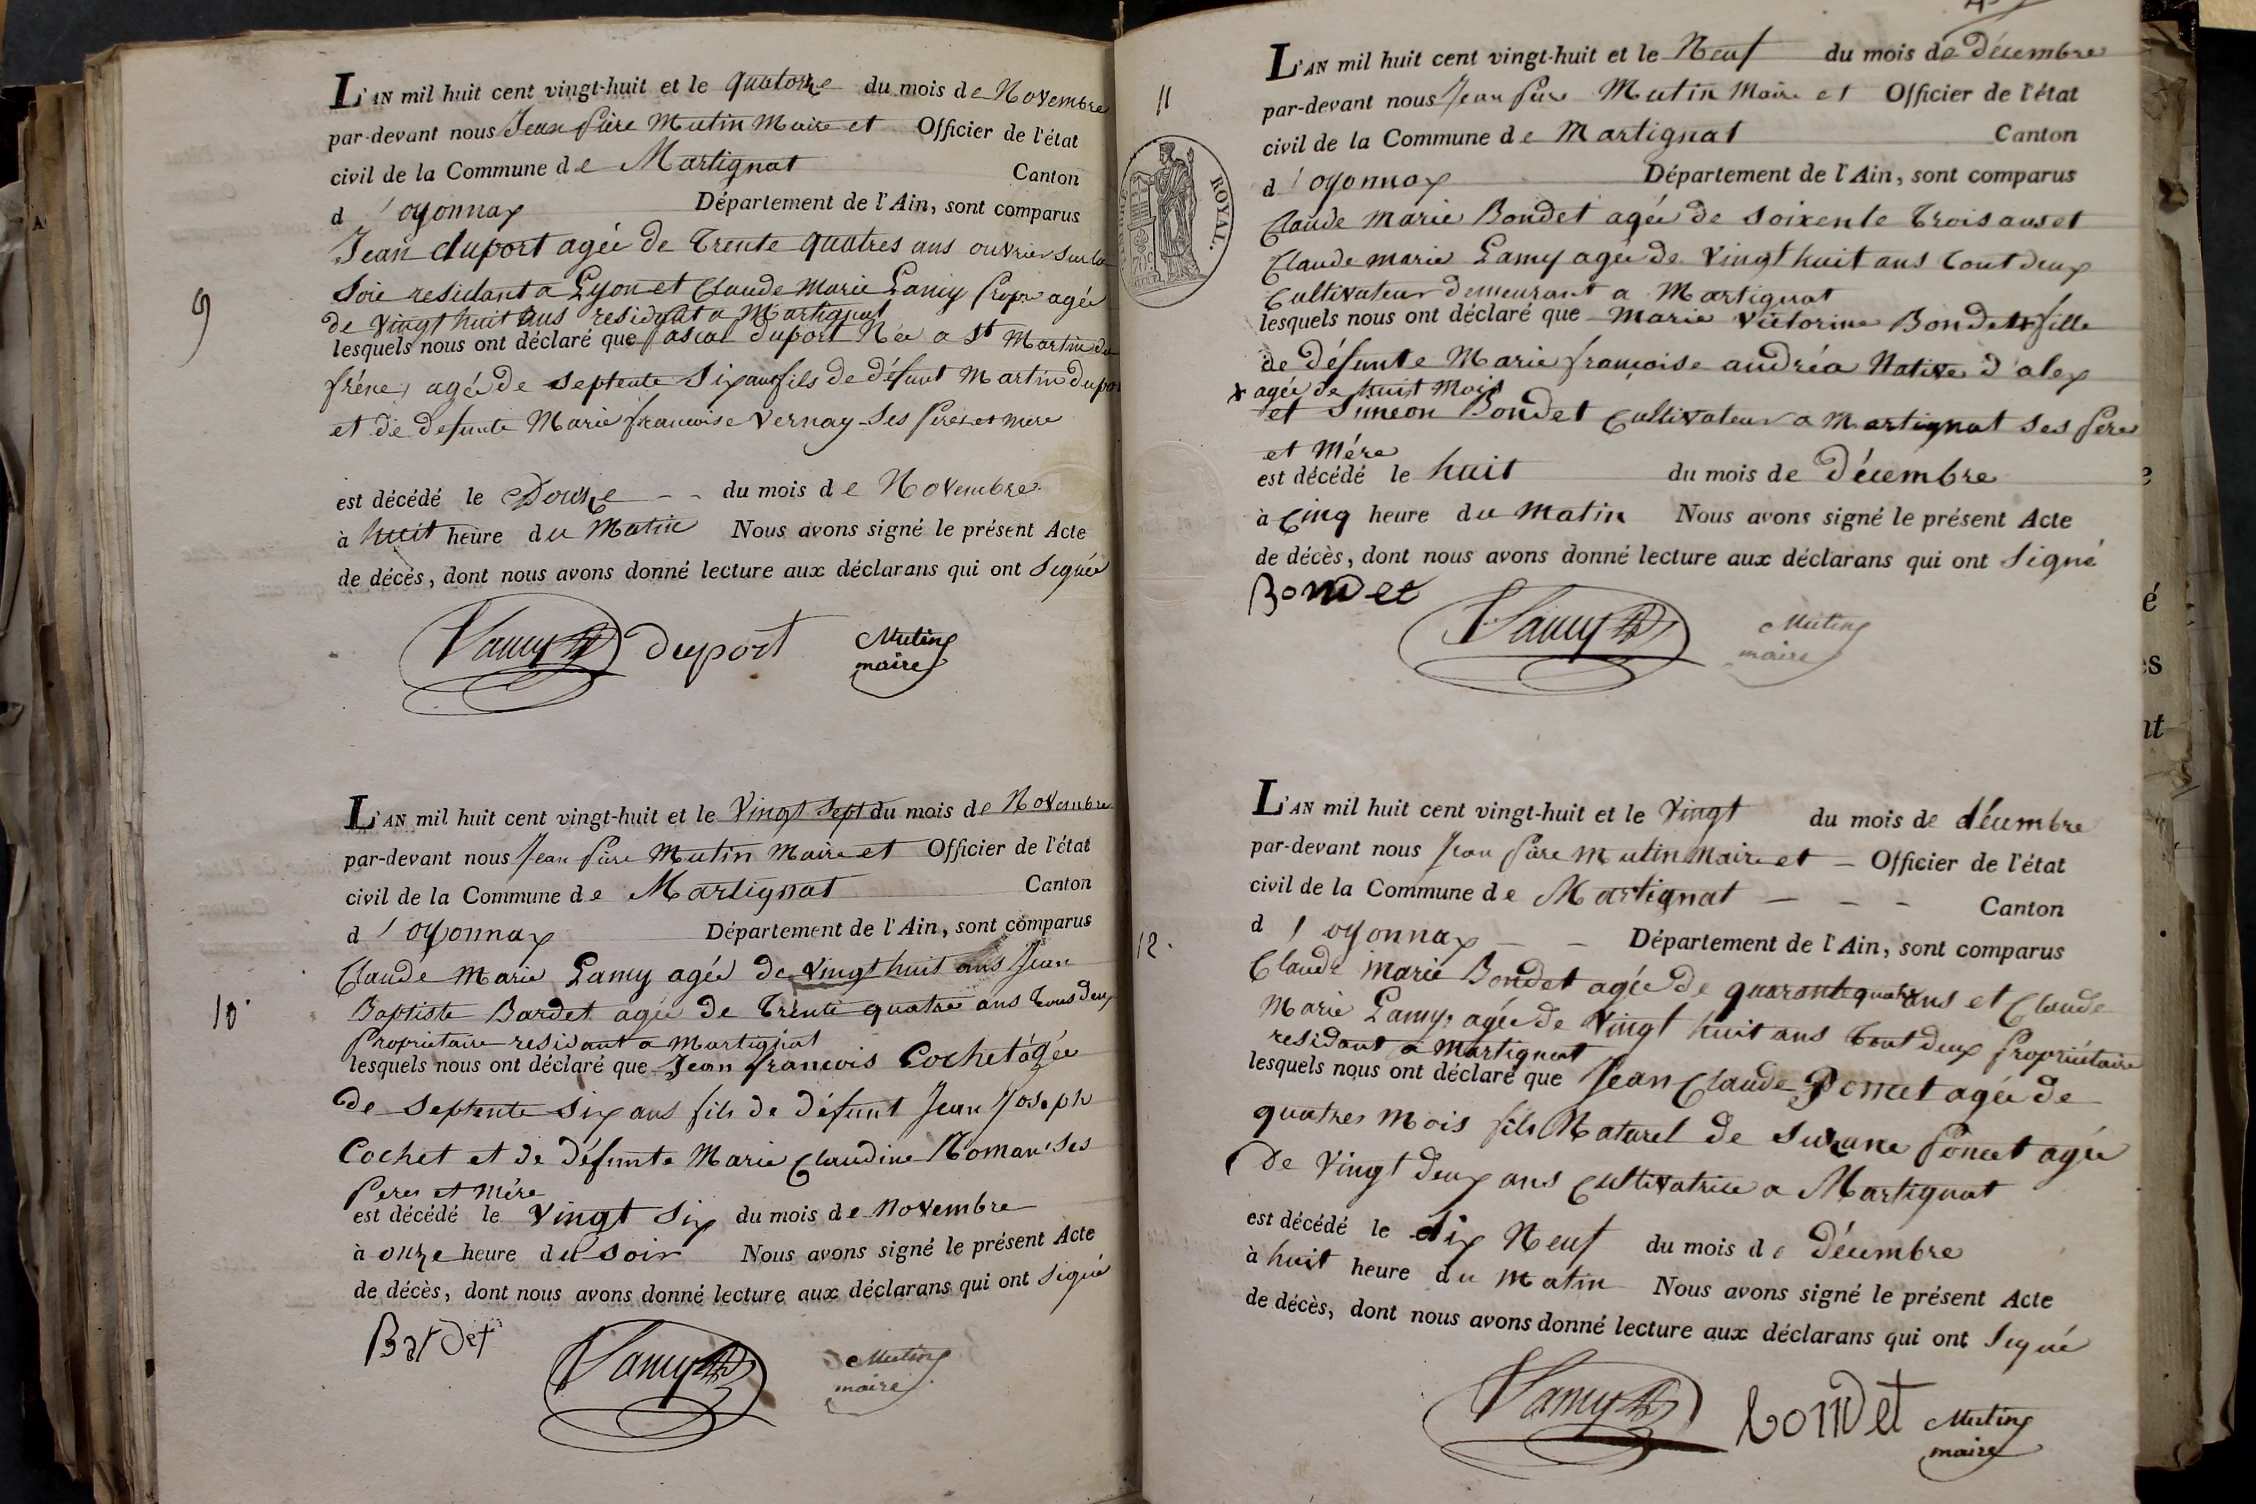 9
L'AN mil huit cent vingt-huit et le quatorze du mois de Novembre
par-devant nous Jean Piere Mutin Maire et Officier de l'état
civil de la Commune de Martignat Canton
d'oyonnax Département de l'Ain, sont comparus
Jean duport agée de trente quatres ans ouvrier sur la
Soie residant a Lyon et Claude Marie Lamy Propre agée
de vingt huit ans residant a Martignat
lesquels nous ont déclaré que Pascal duport Née a St Martin du
frêne, agée de septente Six ans fils de défunt Martin dupor
et de defunte Marie francoise Vernay Ses Peres et Mere
est décédé le Douze du mois de Novembre
à huit heure du Matin Nous avons signé le présent Acte
de décès, dont nous avons donné lecture aux déclarans qui ont Signée
Lamy duport Mutin
maire
10
L'AN mil huit cent vingt-huit et le Vingt Sept du mois de Novembre
par-devant nous Jean Piere Mutin Maire et Officier de l'état
civil de la Commune de Martignat Canton
d'oyonnax Département de l'Ain, sont comparus
Claude Marie Lamy agée de vingt huit ans Jean
Baptiste Bardet agée de Trente quatre ans tous deux
Propriétaire residant a Martignat
lesquels nous ont déclaré que Jean francois Cochet agée
de septente Six ans fils de défunt Jean Joseph
Cochet et de défunte Marie Claudine Roman Ses
Peres et Mére
est décédé le Vingt Six du mois de Novembre
à onze heure du Soir Nous avons signé le présent Acte
de décès, dont nous avons donné lecture aux déclarans qui ont Signé
Bardet Lamy Mutin
maire
11
ROYAL.
L'AN mil huit cent vingt-huit et le Neuf du mois de Décembre
par-devant nous Jean Piere Mutin Maire et Officier de l'état
civil de la Commune de Martignat Canton
d'oyonnax Département de l'Ain, sont comparus
Claude Marie Bondet agée de soixente trois ans et
Claude Marie Lamy agée de Vingt huit ans tout deux
Cultivateur demeurant a Martignat
lesquels nous ont déclaré que Marie Victorine Bondet x fille
de défunte Marie francoise andréa Native d'alex
x agée de huit Mois
et Simeon Bondet Cultivateur a Martignat ses Pere
et Mére
est décédé le huit du mois de Décembre
à Cinq heure du Matin Nous avons signé le présent Acte
de décès, dont nous avons donné lecture aux déclarans qui ont Signé
Bondet Lamy Mutin
maire
12.
L'AN mil huit cent vingt-huit et le Vingt du mois de décembre
par-devant nous Jean Piere Mutin Maire et Officier de l'état
civil de la Commune de Martignat Canton
d'oyonnax Département de l'Ain, sont comparus
Claude Marie Bondet agée de quarante quatre ans et Claude
Marie Lamy, agée de Vingt huit ans tout deux Propriétaire
residant a Martignat
lesquels nous ont déclaré que Jean Claude Poncet agée de
quatres Mois fils Naturel de Suzane Poncet agée
de Vingt deux ans Cultivatrice a Martignat
est décédé le dix Neuf du mois de Décembre
à huit heure du Matin Nous avons signé le présent Acte
de décès, dont nous avons donné lecture aux déclarans qui ont Signé
Lamy bondet Mutin
maire